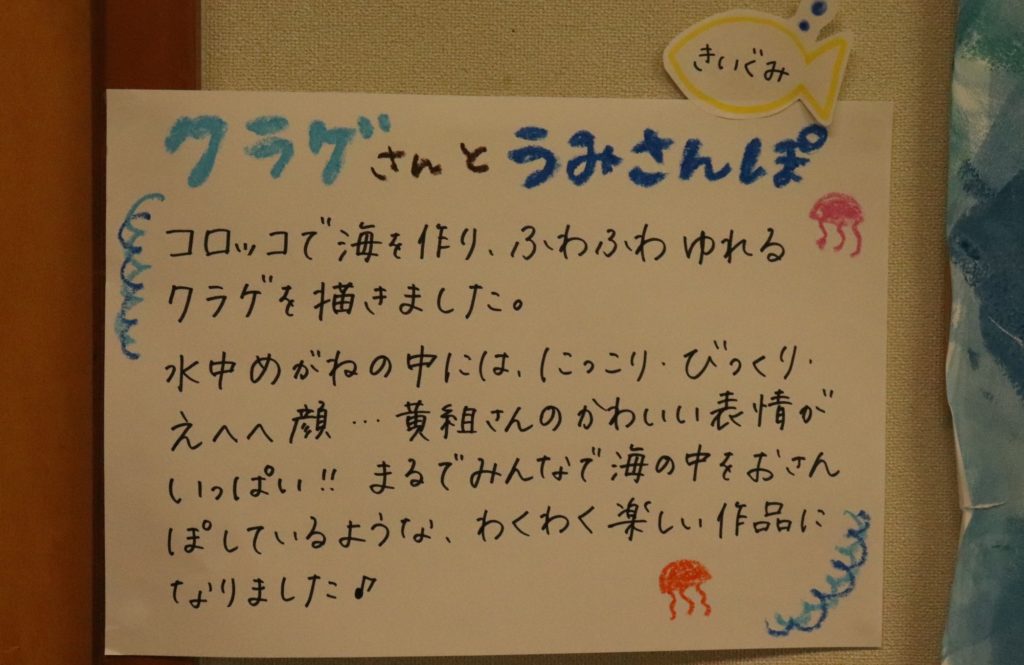 きいぐみ
クラゲさんとうみさんぽ
コロッコで海を作り、ふわふわゆれる
クラゲを描きました。
水中めがねの中には、にっこり・びっくり・
えへへ顔…黄組さんのかわいい表情が
いっぱい!! まるでみんなで海の中をおさん
ぽしているような、わくわく楽しい作品に
なりました♪